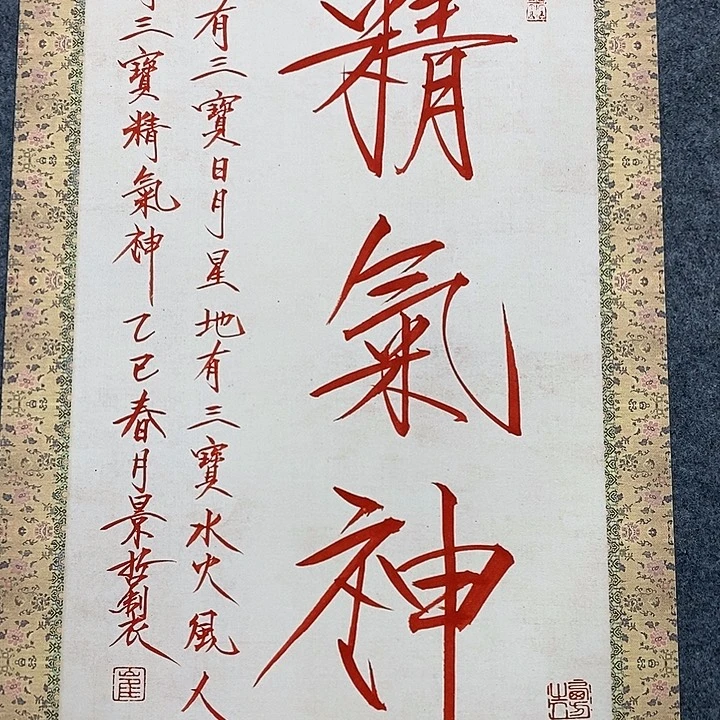 精氣神
有三寶日月星地有三寶水火風人
三寶精氣神乙巳春月景哲製